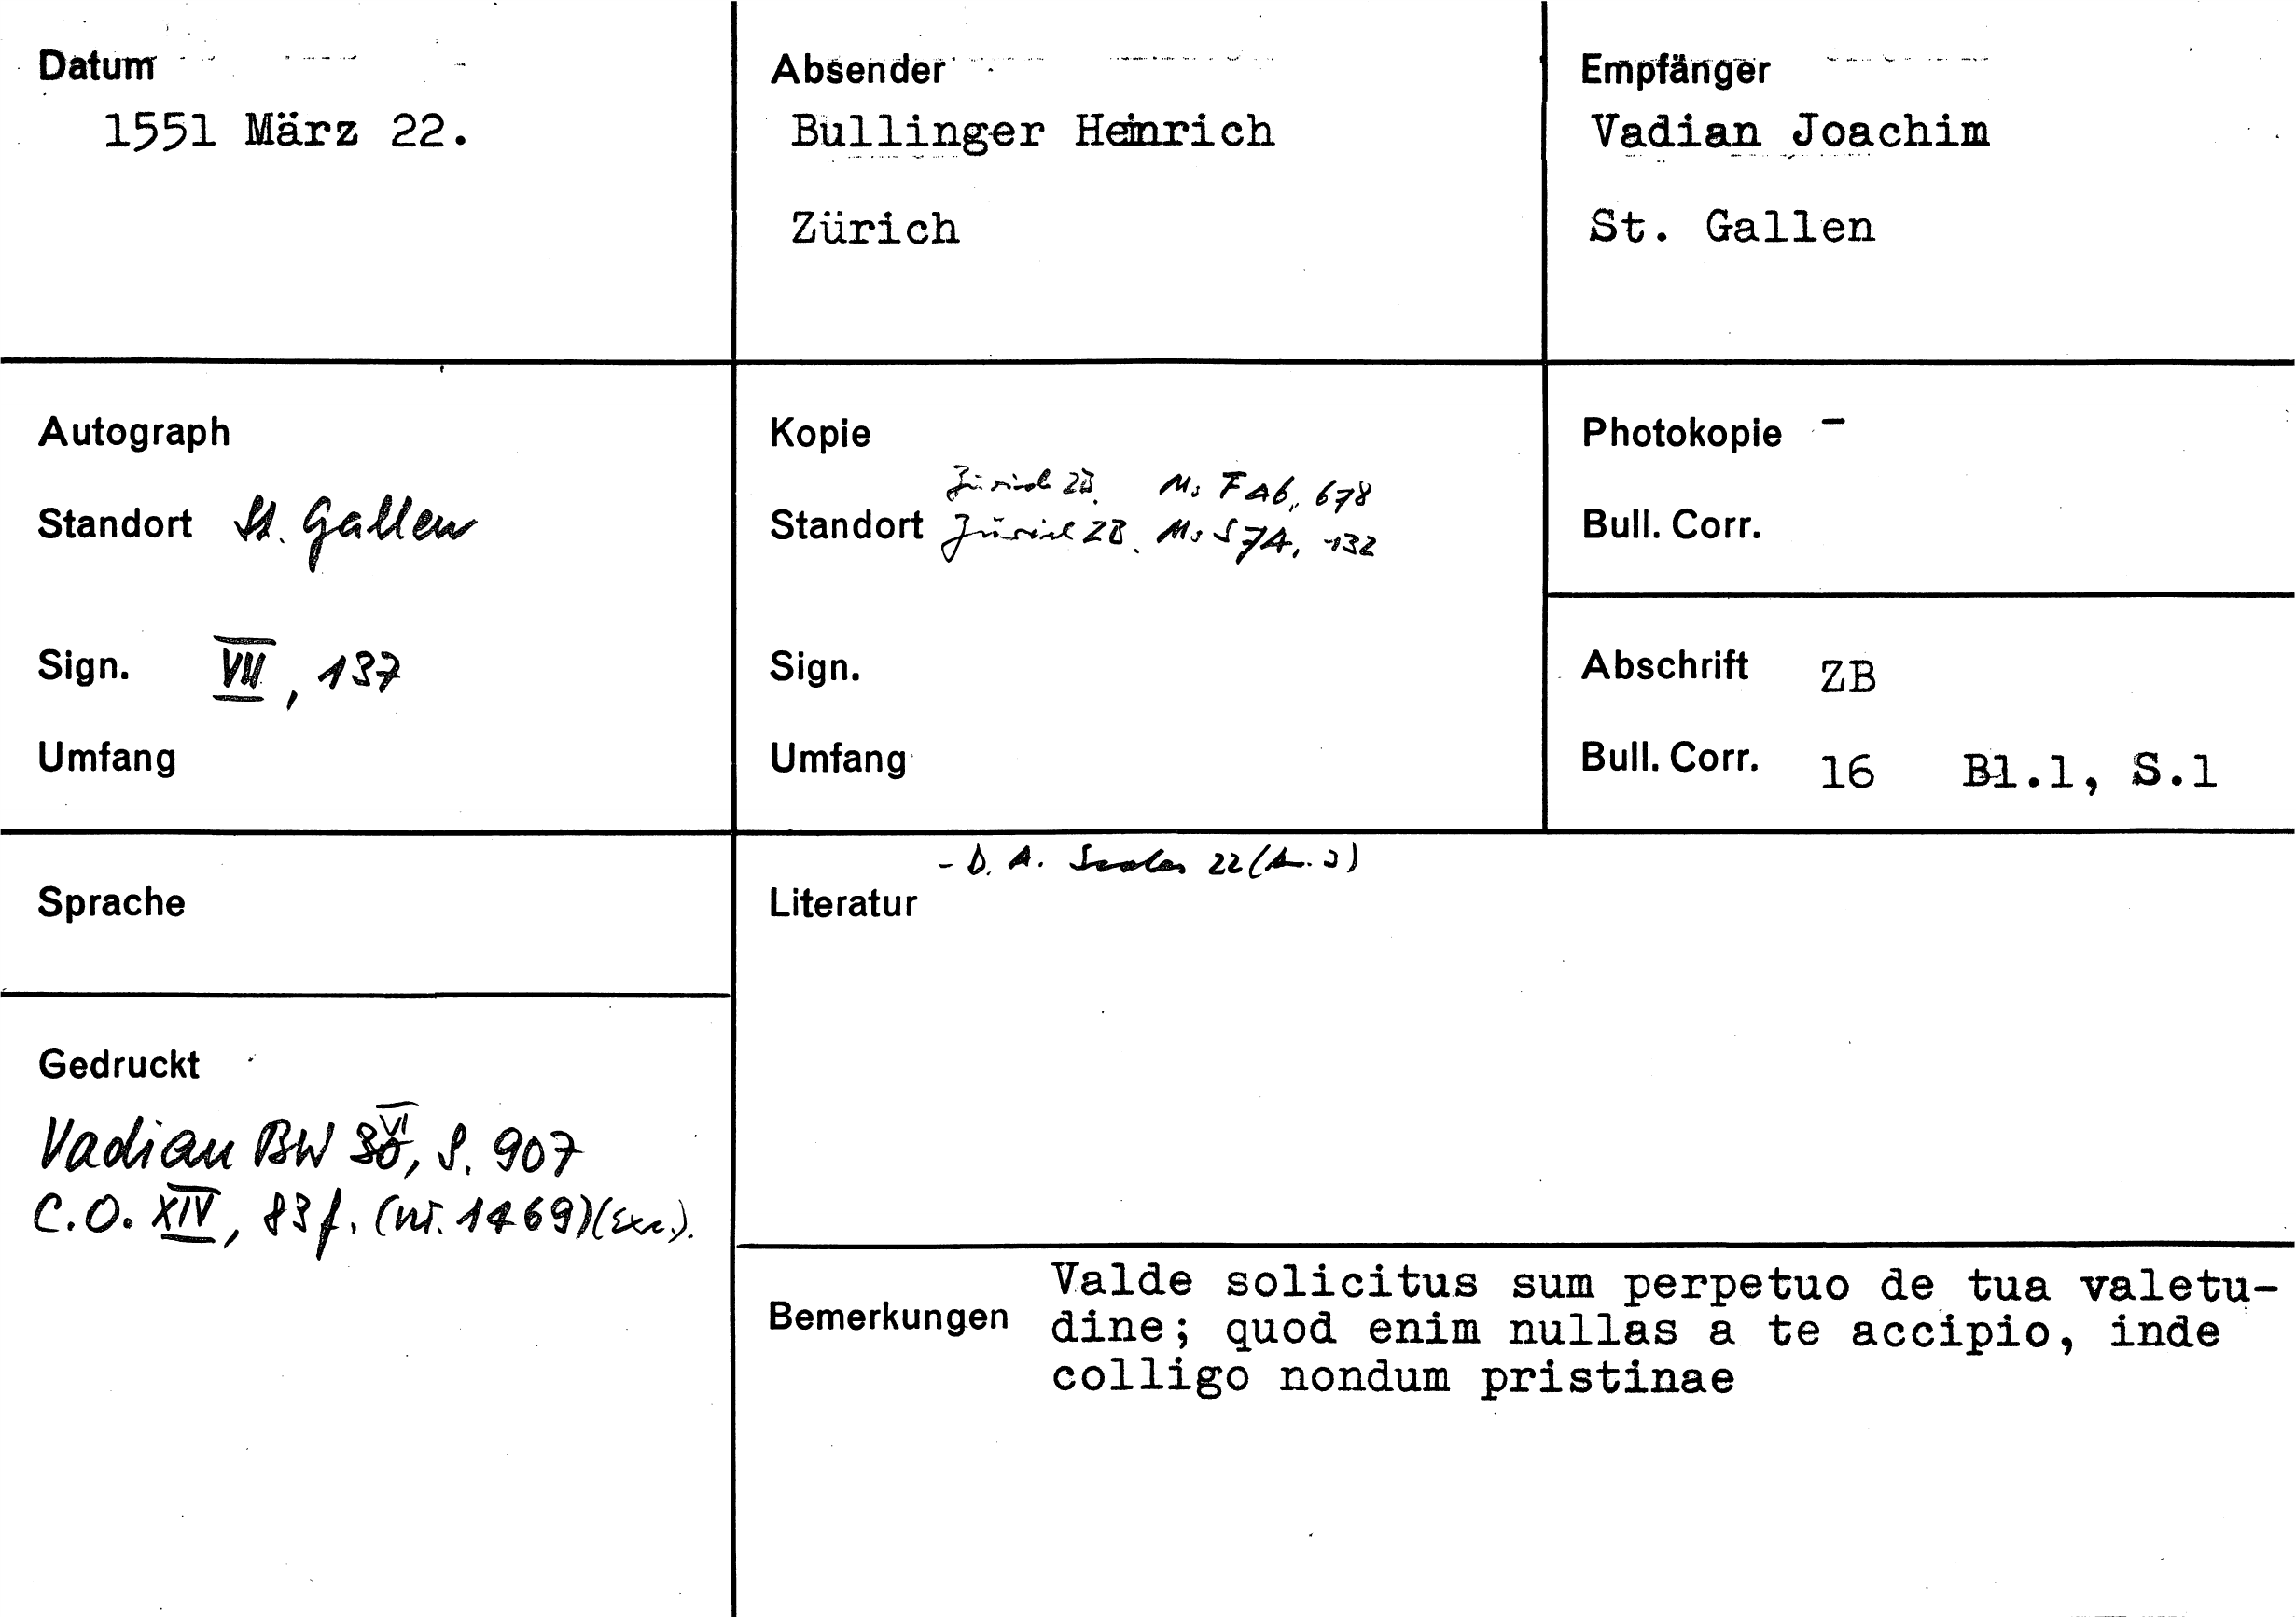 Datum
1551 März 22.
Absender
Bullinger Heinrich
Zürich
Empfänger
Vadian Joachim
St. Gallen
Autograph
Standort St. Gallen
Sign. VII, 137
Umfang
Kopie
Zürich ZB. Ms F 46, 678
Standort Zürich ZB. Ms S 74, 132
Sign.
Umfang
Photokopie -
Bull. Corr.
Abschrift ZB
Bull. Corr. 16 Bl.1, S.1
Sprache
Gedruckt
Vadian BW VI, S. 907
C.O. XIV, 83f. (nr. 1469)(Exc.).
- D. A. 22
Literatur
Bemerkungen
Valde solicitus sum perpetuo de tua valetu-
dine; quod enim nullas a te accipio, inde
colligo nondum pristinae